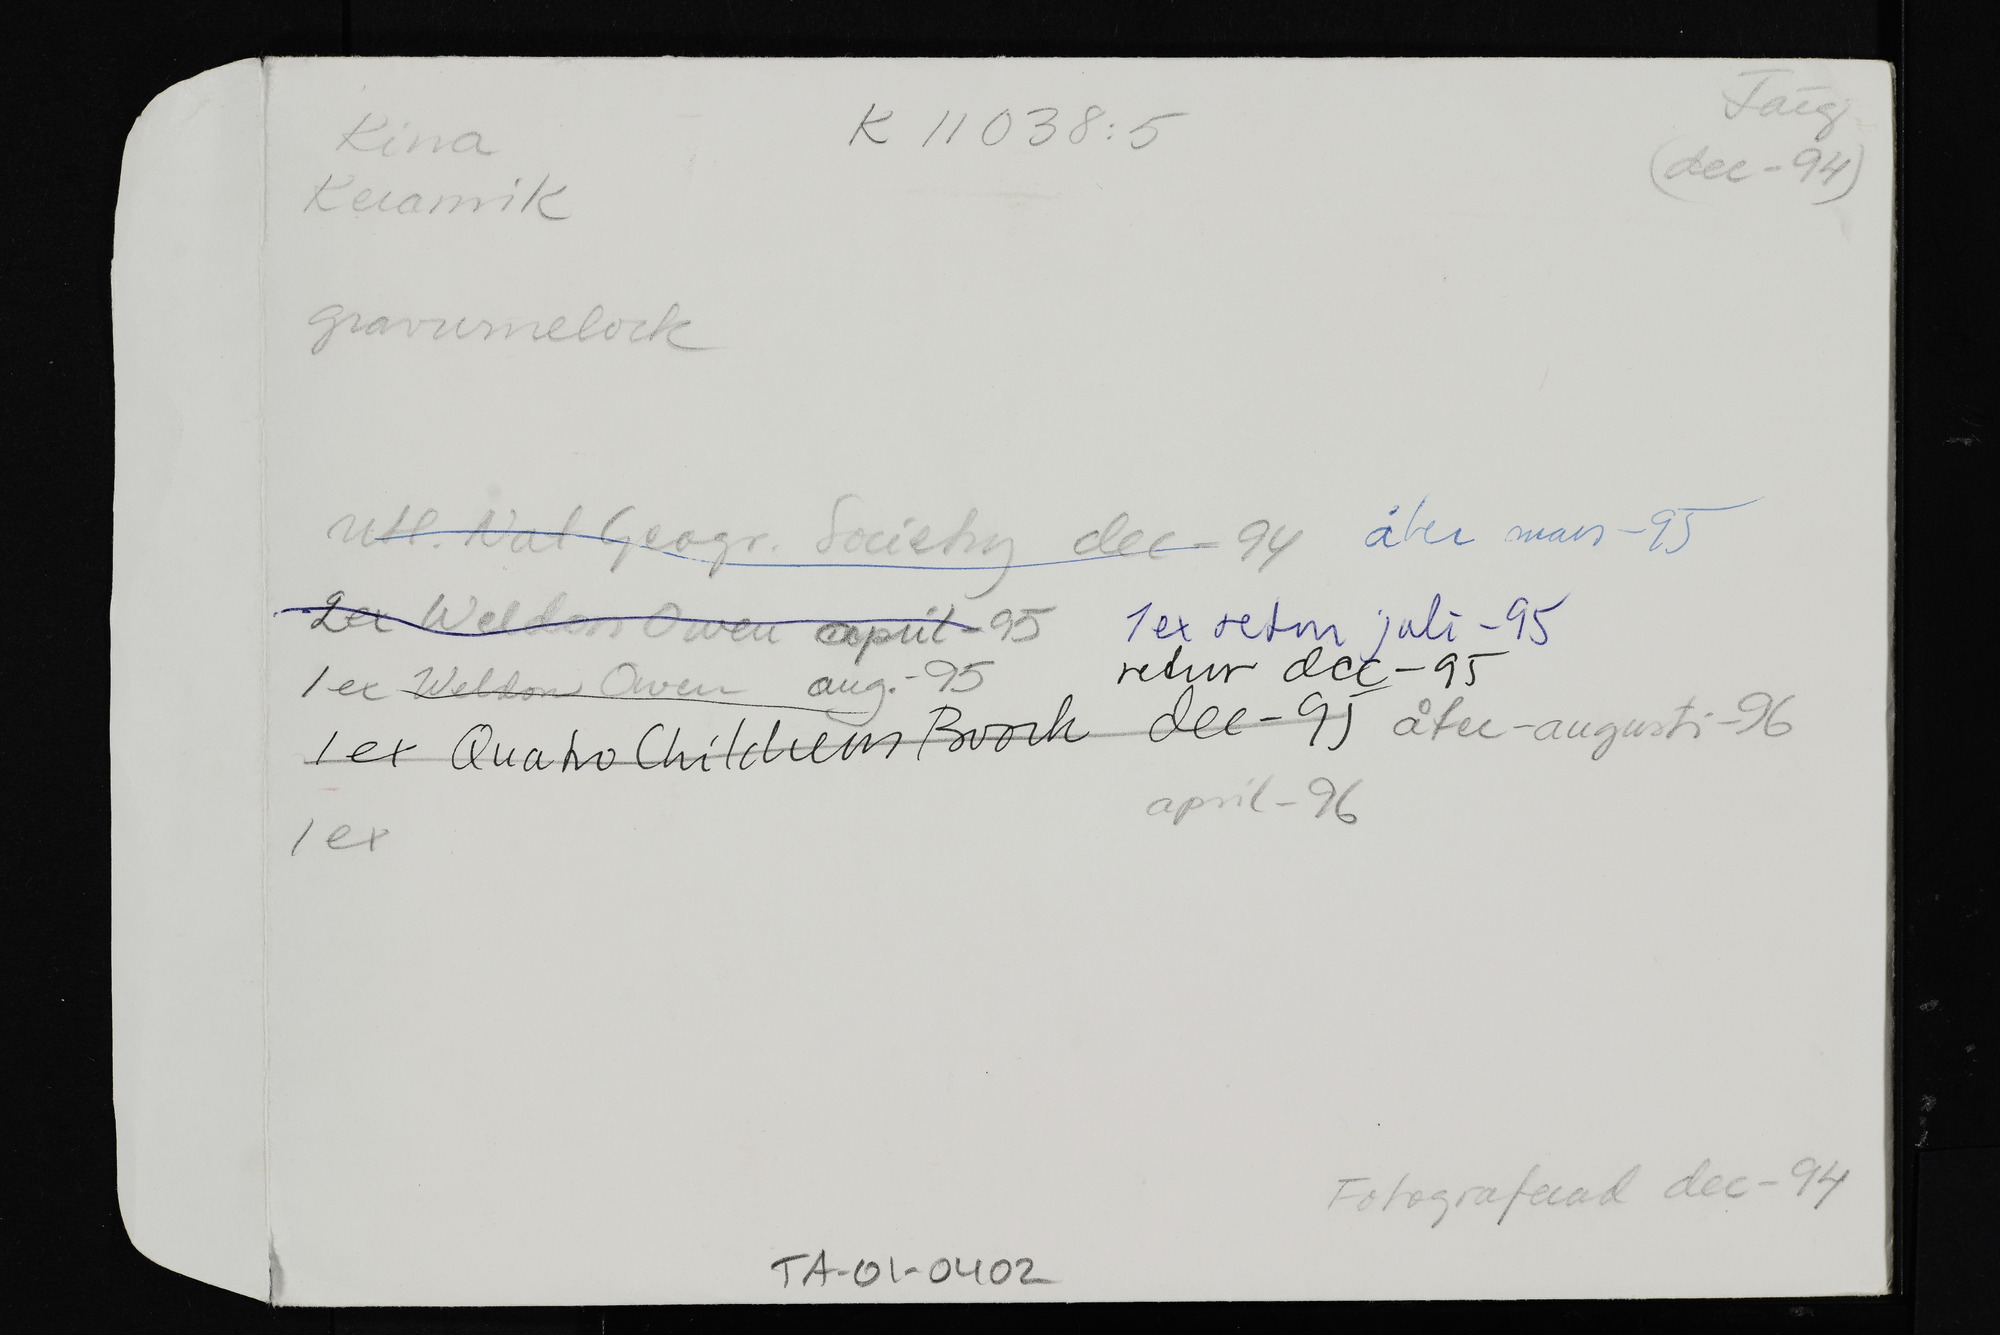 Kina K 11038:5 Färg
Keramik (dec-94)
gravurnelock
utl. Nat Geogr. Society dec-94 åter mars-95
2ex Weldon Owen april-95 1ex retur juli-95
1ex Weldon Owen aug.-95 retur dec-95
1ex Quatro Childrens Boock dec-95 åter-augusti-96
april-96
1ex
Fotograferad dec-94
TA-01-0402